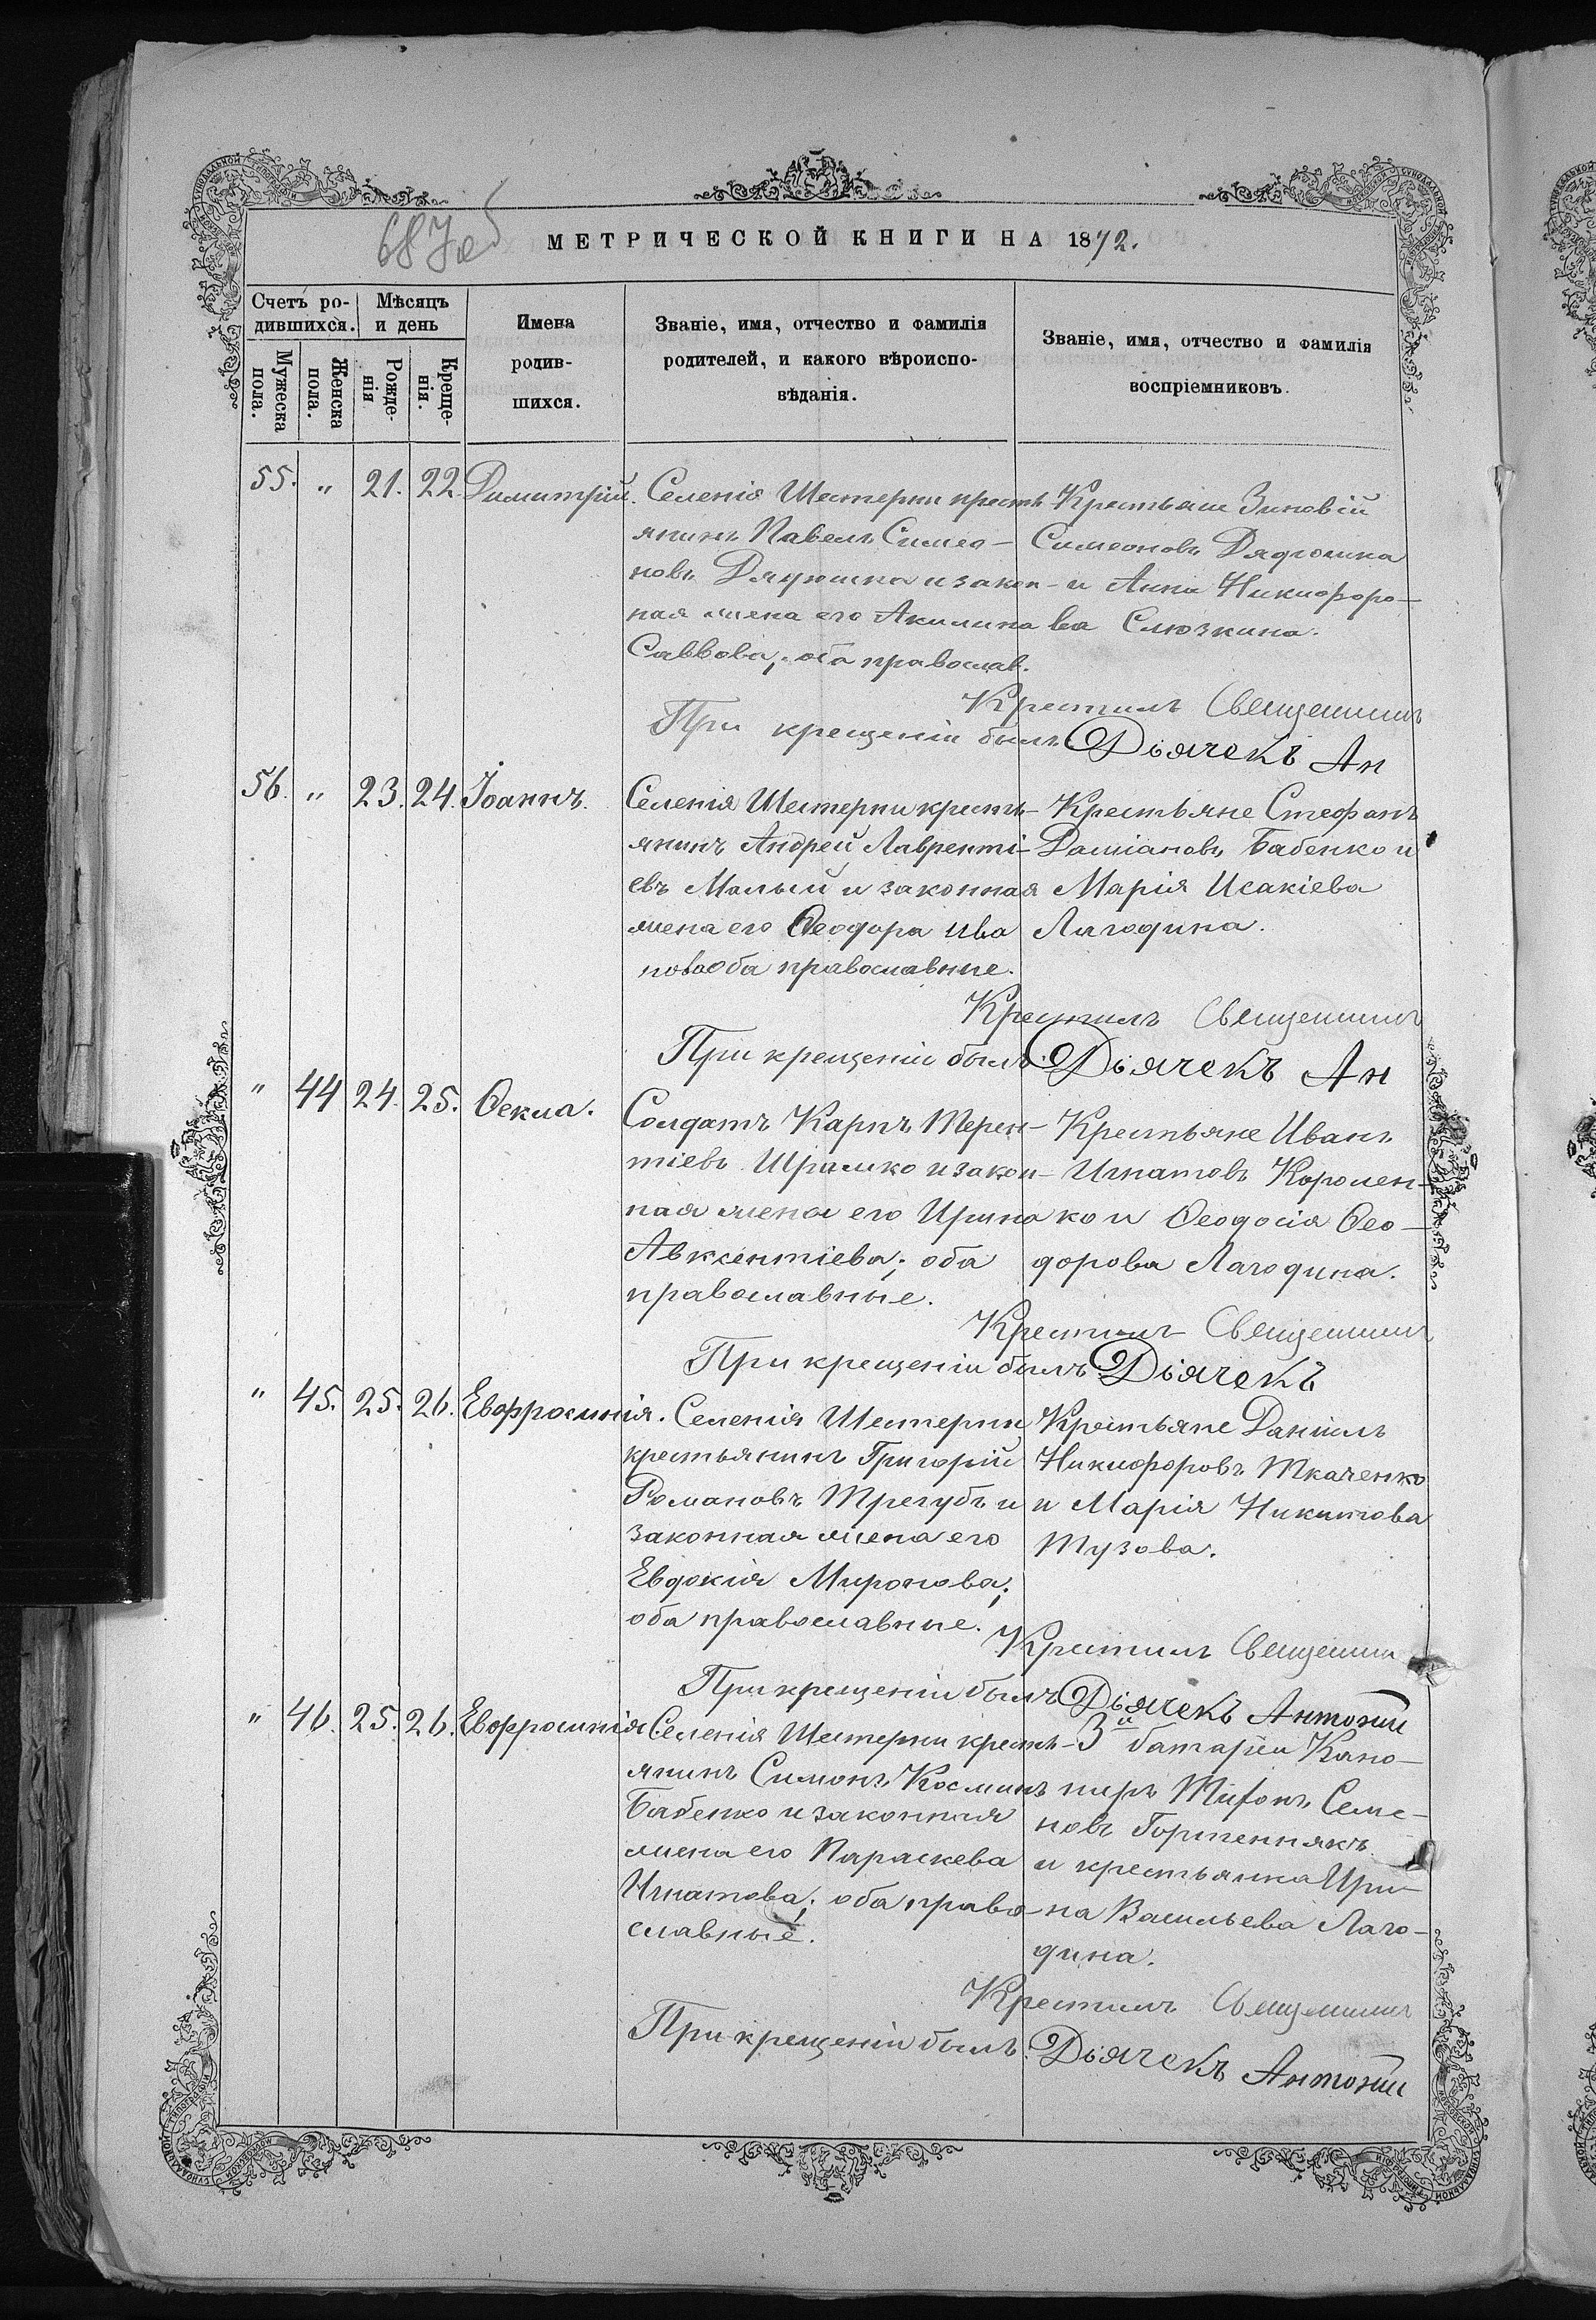 687об
МЕТРИЧЕСКОЙ КНИГИ НА 1872.
Счетъ ро-
дившихся.
Мѣсяцъ
и день
Мужеска
пола.
Женска
пола.
Рожде-
нія
Креще-
нія.
Имена
родив-
шихся.
Званіе, имя, отчество и фамилія
родителей, и какого вѣроиспо-
вѣданія.
Званіе, имя, отчество и фамилія
воспріемниковъ.
55. " 21. 22. Димитрій.
Селенія Шестерни кресть
янинъ Павелъ Симео-
новъ Дядюшка и закон-
ная жена его Акилина
Саввова; оба православ.
Крестьяне Зиновій
Симеоновъ Дядюшка
и Анна Никифоро-
ва Слюзкина.
Крестилъ Священникъ
При крещеніи былъ Діячекъ Ан
56. " 23. 24. Іоаннъ.
Селенія Шестерни кресть-
янинъ Андрей Лавренті-
евъ Малый и законная
жена его Ѳеодора Ива
нова оба православные.
Крестьяне Стефанъ
Даміановъ Бабенко и
Марія Исакіева
Лагодина.
Крестилъ Священникъ
При крещеніи былъ Діячекъ Ан
" 44 24. 25. Ѳекла.
Солдатъ Карпъ Терен-
тіевъ Шрамко и закон-
ная жена его Ирина
Авксентіева; оба
православные.
Крестьяне Иванъ
Игнатовъ Королен-
ко и Ѳеодосія Ѳео-
дорова Лагодина.
Крестилъ Священникъ
При крещеніи былъ Діячекъ
" 45. 25. 26. Евфросинія.
Селенія Шестерни
крестьянинъ Григорій
Романовъ Трегубъ и
законная жена его
Евдокія Миронова;
оба православные.
Крестьяне Даніилъ
Никифоровъ Ткаченко
и Марія Никитова
Тузова.
Крестилъ Священни
При крещеніи былъ Діячекъ Антоній
" 46. 25. 26. Евфросинія
Селенія Шестерни кресть-
янинъ Симонъ Косминъ
Бабенко и законная
жена его Параскева
Игнатова; оба право-
славные.
3й батареи Кано-
ниръ Семе-
новъ
и крестьянка Ири-
на Васильева Лаго-
дина.
Крестилъ Священникъ
При крещеніи былъ Діячекъ Антоній